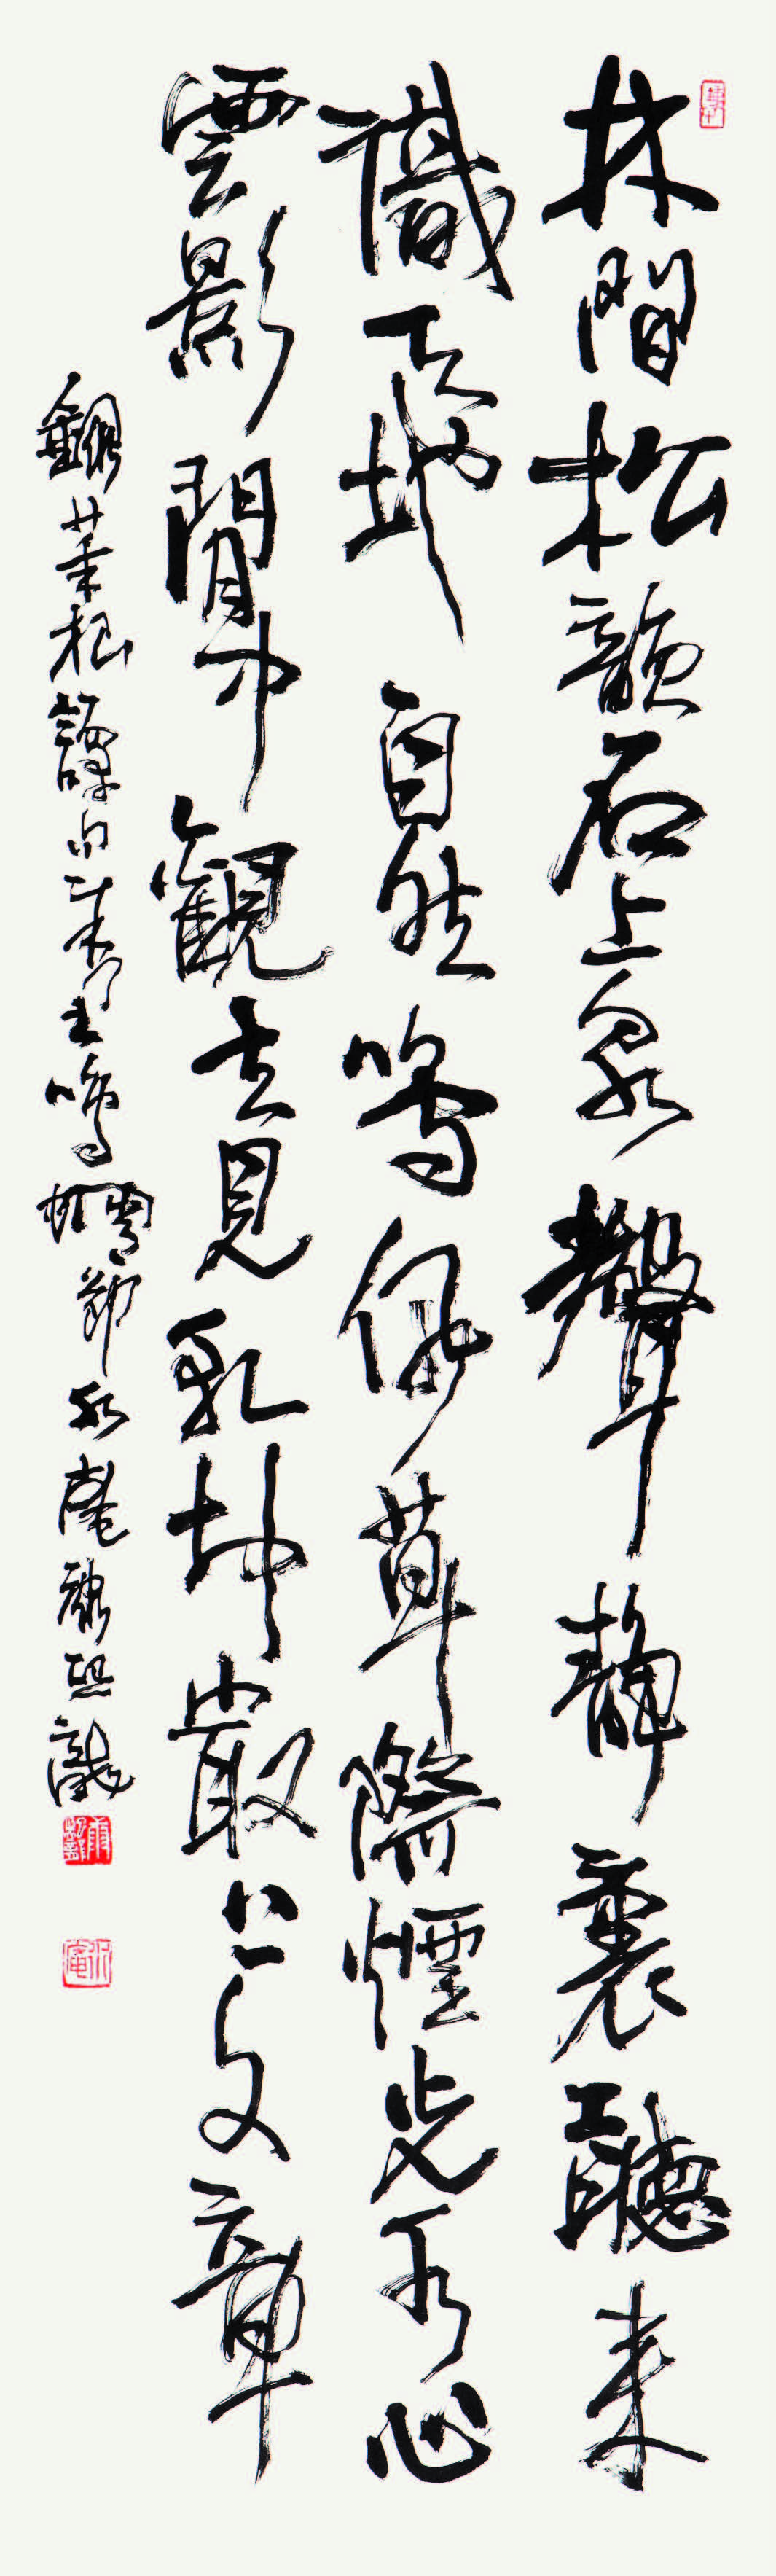 林間松韻石上泉聲靜裏聽來
識天地自然鳴佩草際煙光水心
雲影閒中觀去見乾坤最上文章
錄菜根譚句 鳴蜩節